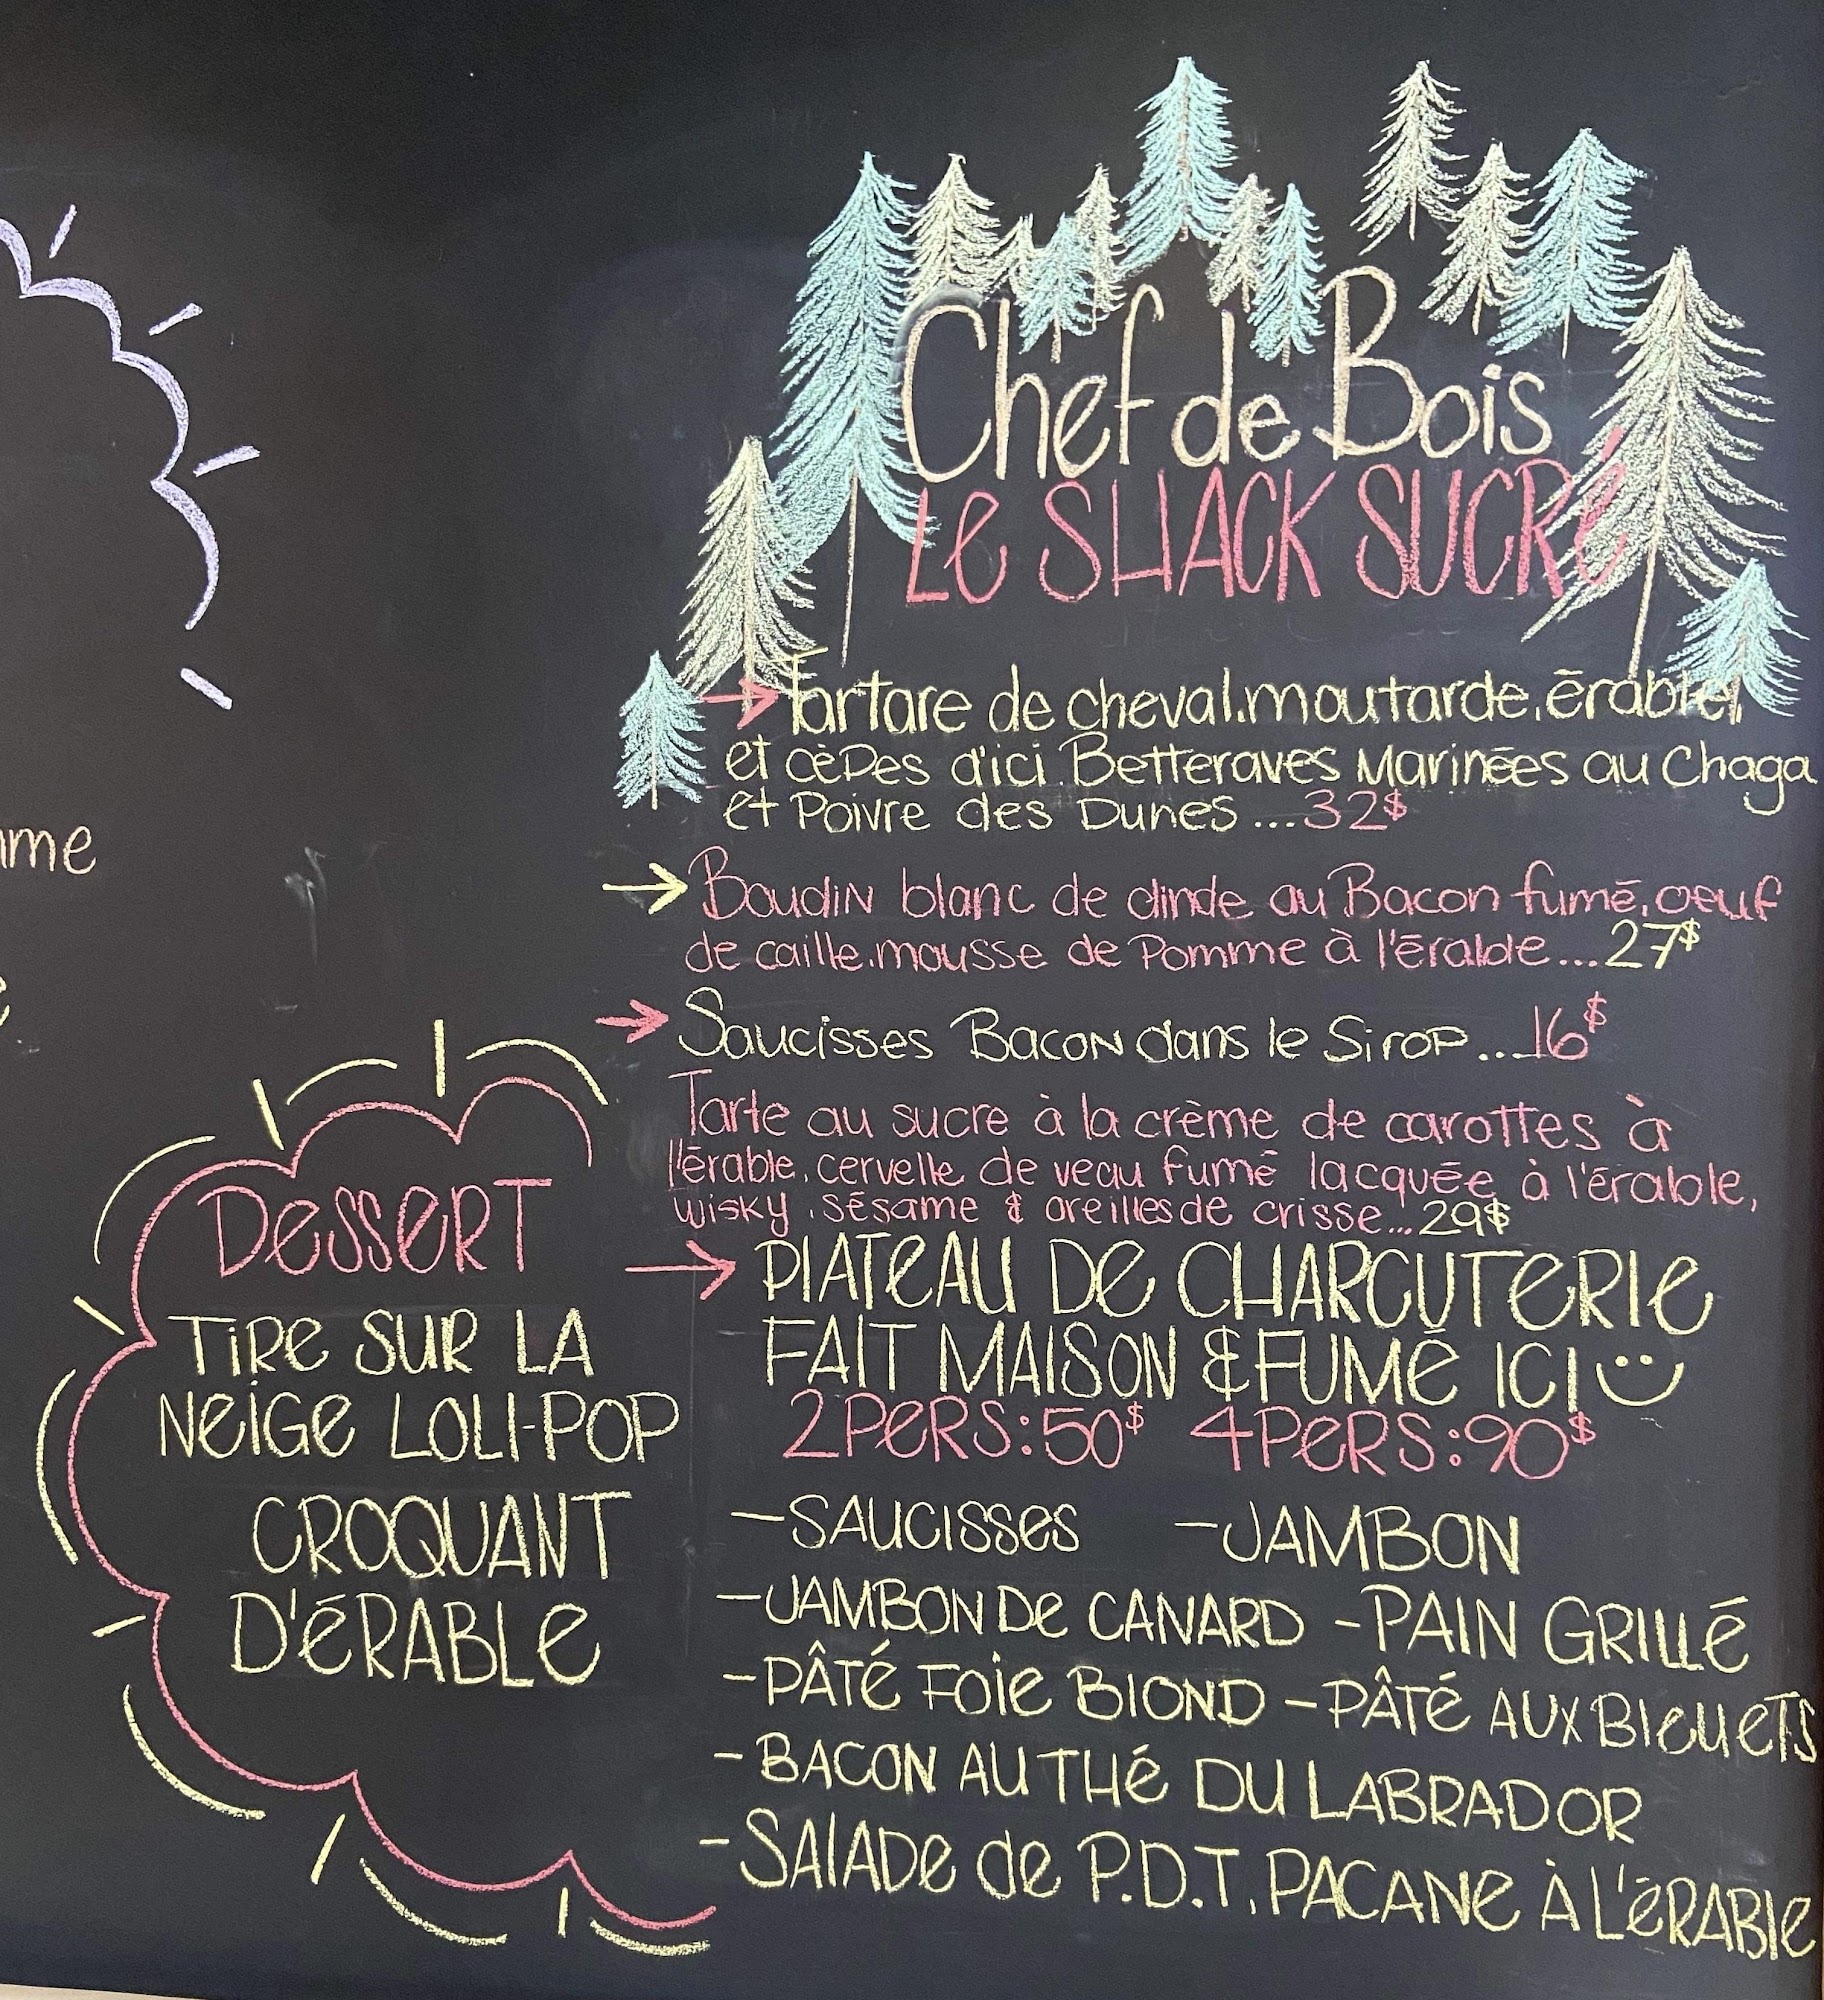 Chef de Bois
Le SHACK SUCRé
→ Tartare de cheval, moutarde, érable,
et cèpes d'ici. Betteraves Marinées au Chaga
et Poivre des Dunes...32$
→ Boudin blanc de dinde au Bacon fumé, oeuf
de caille, mousse de Pomme à l'érable...27$
→ Saucisses Bacon dans le Sirop...16$
Tarte au sucre à la crème de carottes à
l'érable, cervelle de veau fumé lacquée à l'érable,
wisky, sésame & oreilles de crisse...29$
→ PLATeAU De CHARCUTeRIe
FAIT MAISON & FUMé ICI
2PeRS:50$ 4PeRS:90$
-SAUCISSes -JAMBON
-JAMBON De CANARD -PAIN GRILLé
-PÂTé FOIe BLOND -PÂTé AUX BLeUeTS
-BACON AU THé DU LABRADOR
-SALADe de P.D.T, PACANe À L'éRABLe
DeSSeRT
TiRe SUR LA
NeiGe LOLI-POP
CROQUANT
D'éRABLe